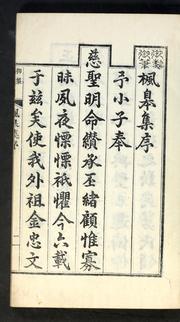 御製
御筆
楓皋集序
予小子奉
慈聖明命纘承丕緖顧惟寡
昧夙夜慄慄祗懼今六載
于玆矣使我外祖金忠文